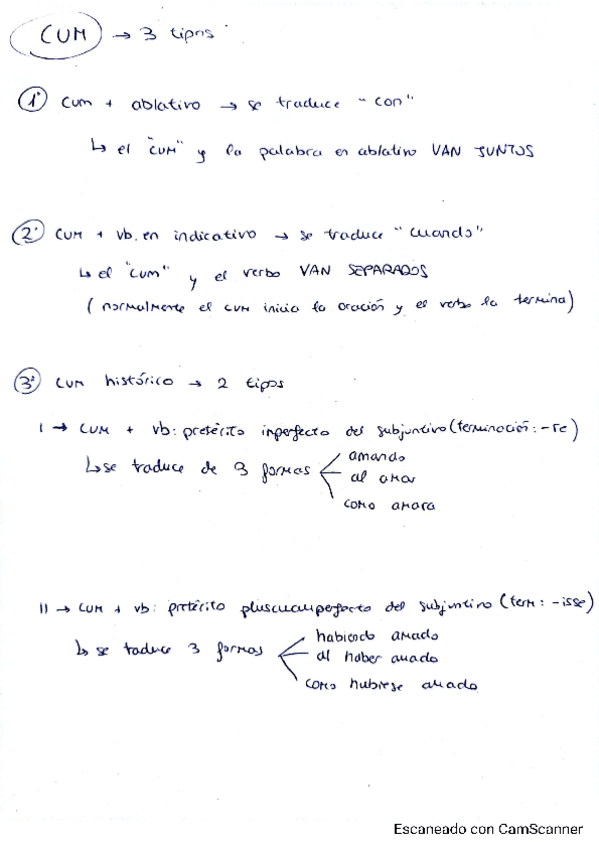 CUM → 3 tipos
1º Cum + ablativo → se traduce "con"
↳ el "cum" y la palabra en ablativo VAN JUNTOS
2º CUM + vb. en indicativo → se traduce "cuando"
↳ el "cum" y el verbo VAN SEPARADOS
(normalmente el cum inicia la oración y el verbo la termina)
3º Cum histórico → 2 tipos
I → CUM + vb: pretérito imperfecto del subjuntivo (terminación: -re)
↳ se traduce de 3 formas
amando
al amar
como amara
II → CUM + vb: pretérito pluscuamperfecto del subjuntivo (term: -isse)
↳ se traduce 3 formas
habiendo amado
al haber amado
como hubiese amado
Escaneado con CamScanner